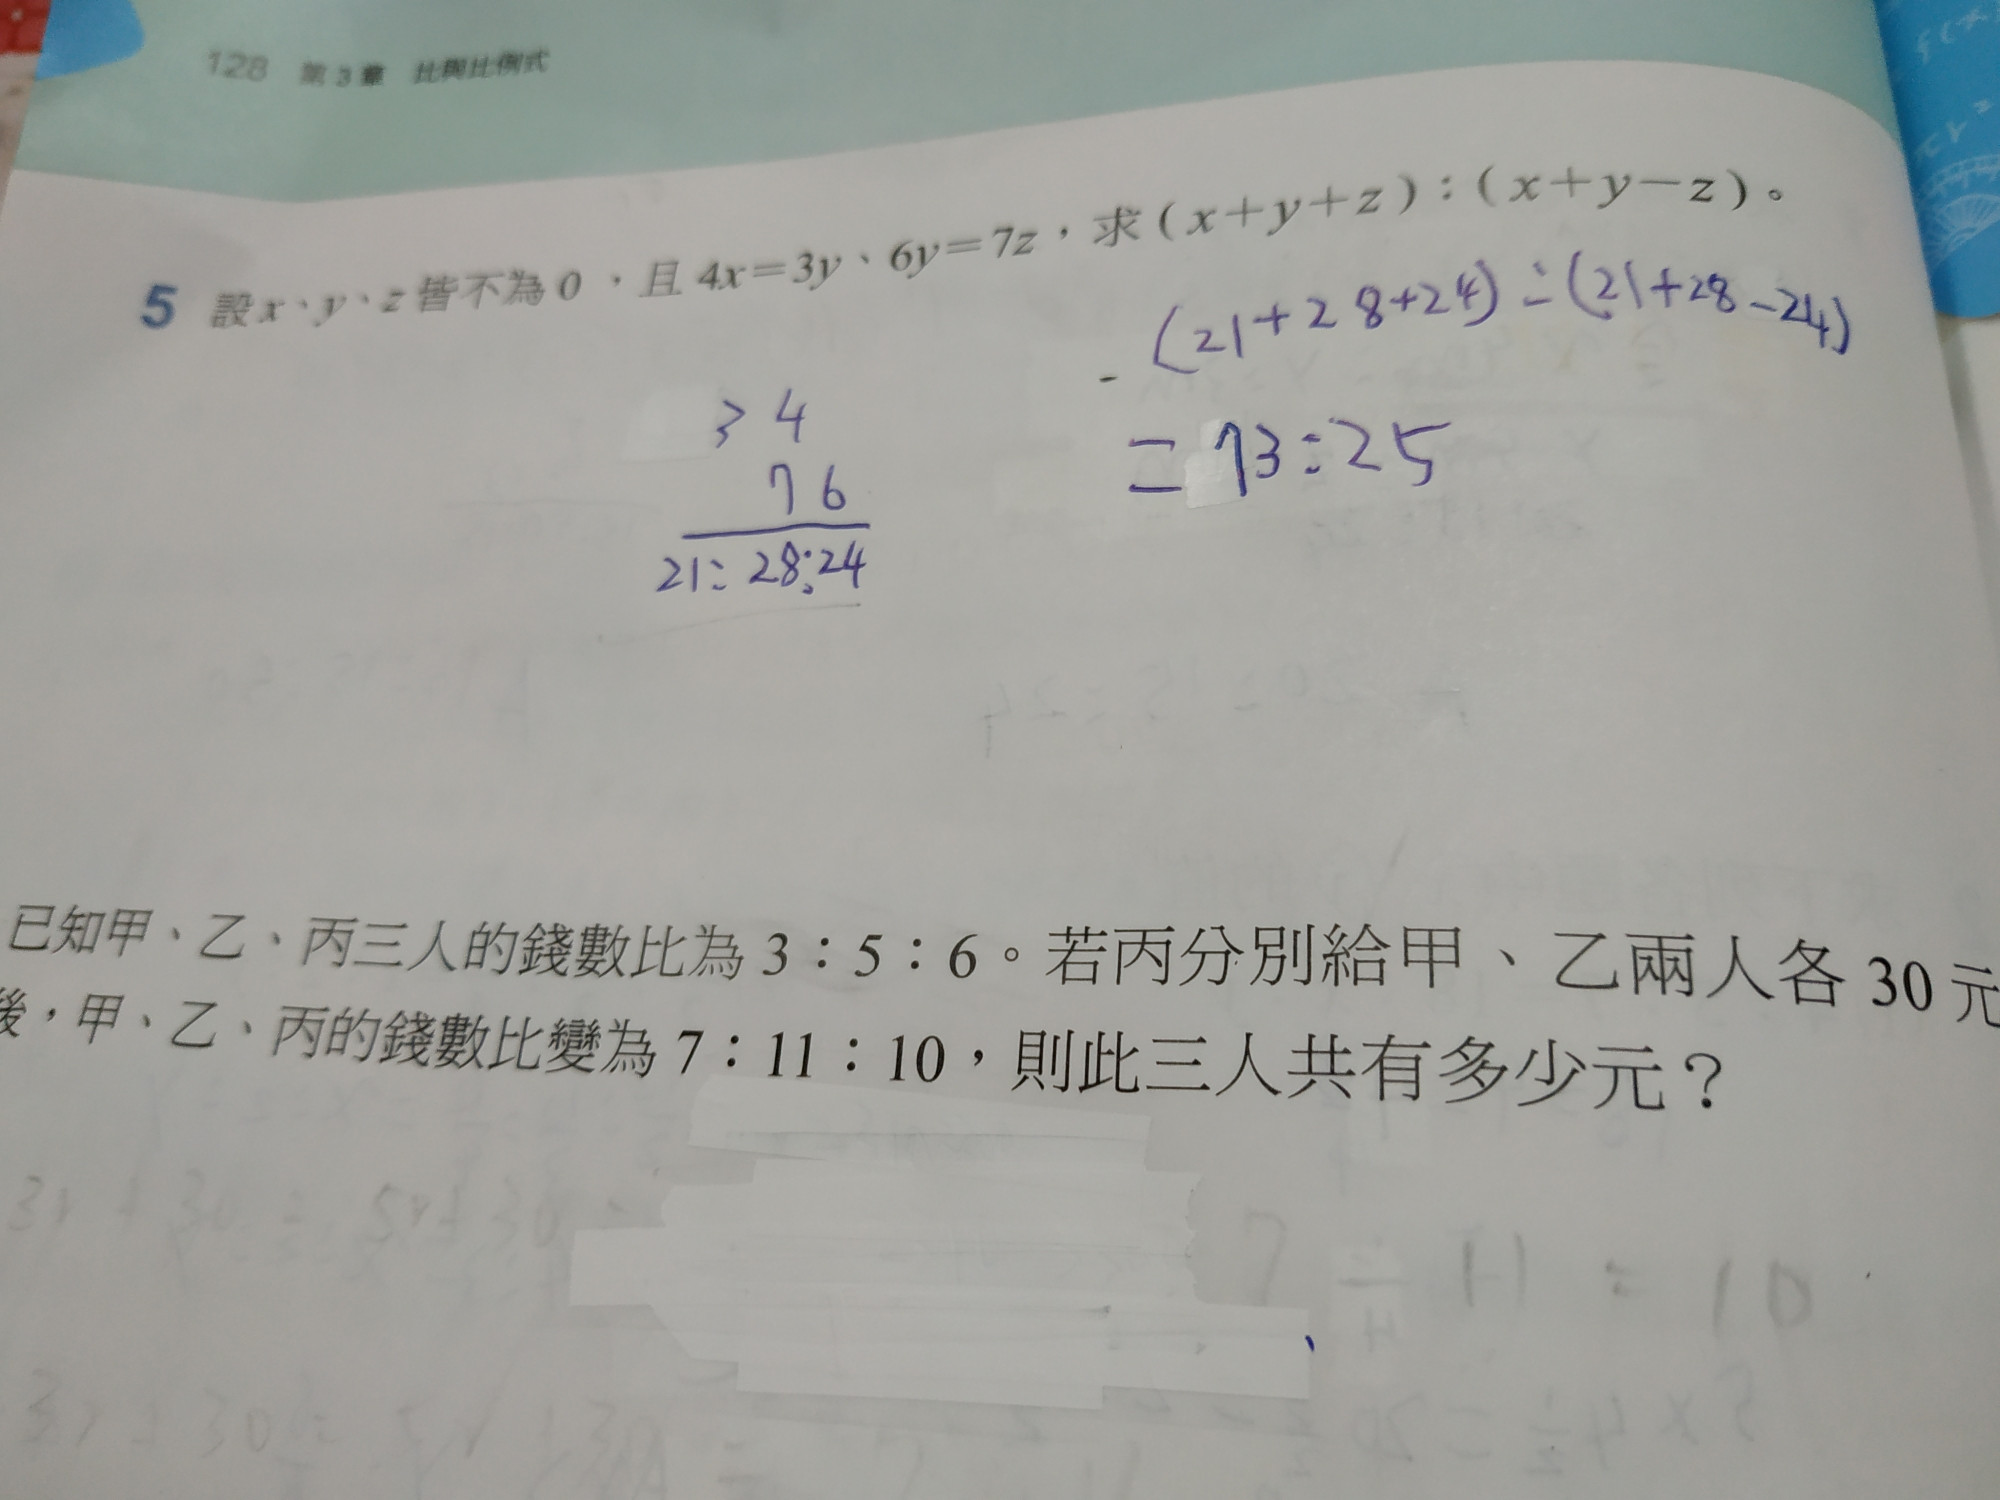 128 第3章 比與比例式
5 設x、y、z皆不為0,且4x=3y、6y=7z,求(x+y+z):(x+y-z)。
(21+28+24):(21+28-24)
3 4
=73:25
7 6
21:28:24
已知甲、乙、丙三人的錢數比為3:5:6。若丙分別給甲、乙兩人各30元
後,甲、乙、丙的錢數比變為7:11:10,則此三人共有多少元?